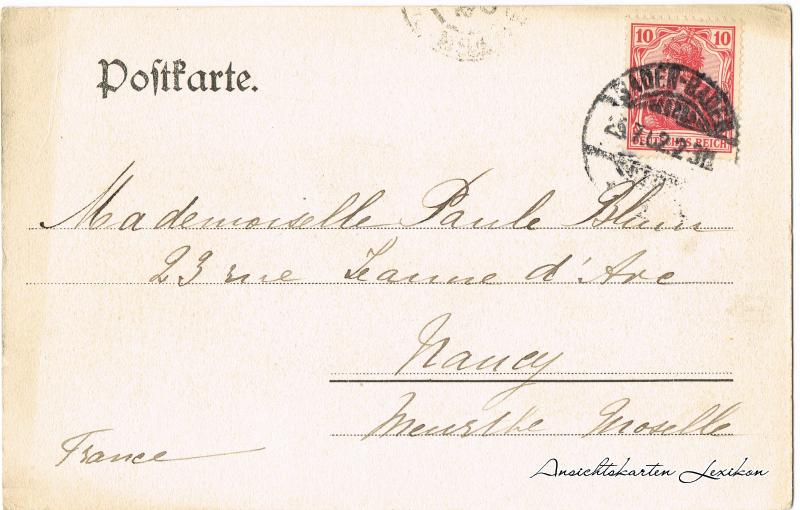 Postkarte.
10 10
BADEN-BADEN
DEUTSCHES REICH
Mademoiselle Paule Blum
23 rue Jeanne d'Arc
Nancy
Meurthe Moselle
France
Ansichtskarten Lexikon